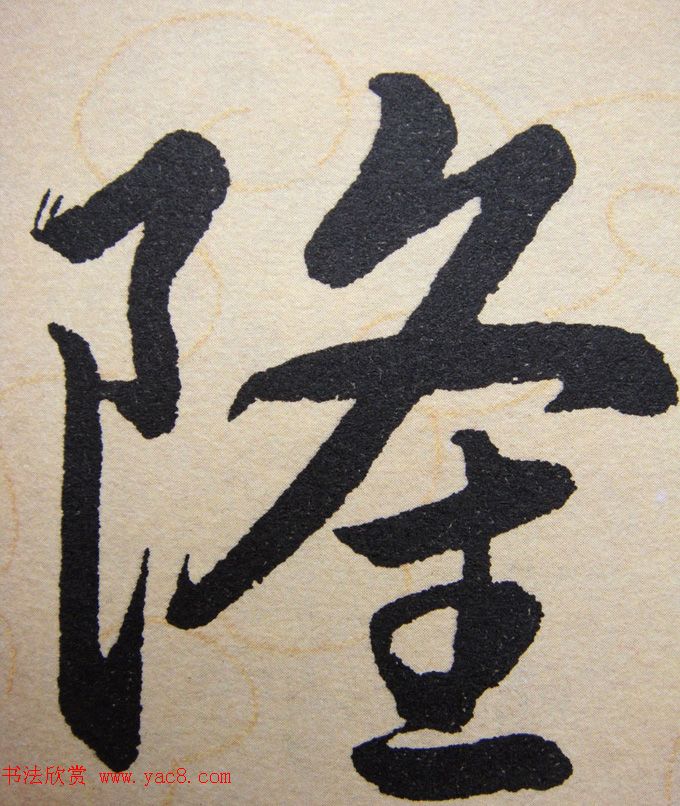 隆
书法欣赏 www.yac8.com